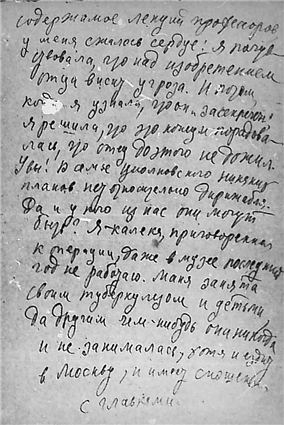 содержание лекций профессоров
у меня сжалось сердце: я почув
ствовала, что над изобретением
отца висит угроза. И потом
когда я узнала что он „засекречен"
я решила, что это конец и порадова
лась, что отец до этого не дожил.
Увы! В семье Циолковского никаких
планов нет относительно Дирижабля.
Да и у кого из нас они могут
быть? Я – калека, приговоренная
к даже в музее последний
год не работаю. Маня занята
своим туберкулезом и детьми
да другим чем-нибудь она никогда
и не занималась, хотя и ездит
в Москву, и имеет сношения
с главками.